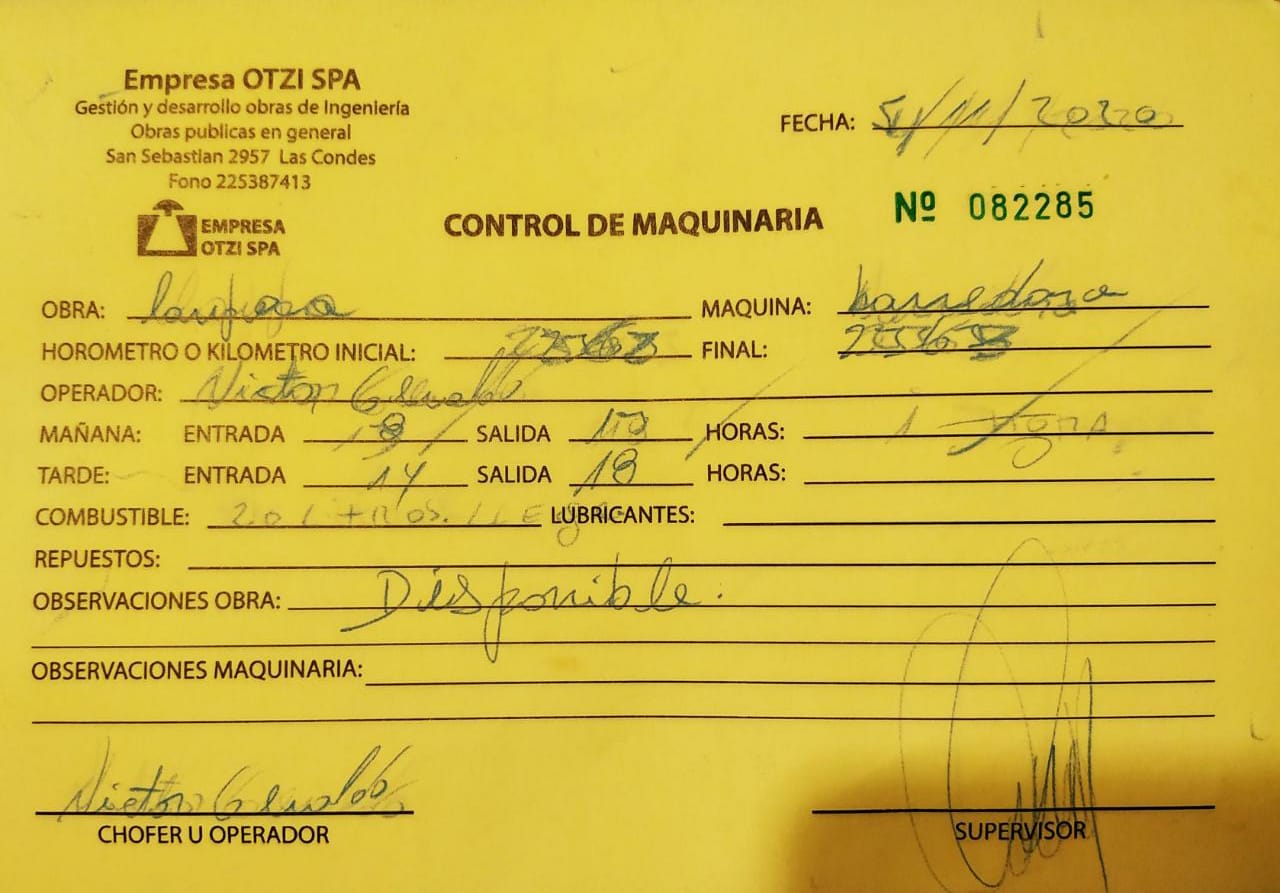 Empresa OTZI SPA
Gestión y desarrollo obras de Ingeniería
Obras publicas en general
San Sebastian 2957 Las Condes
Fono 225387413
EMPRESA
OTZI SPA
FECHA: 5/11/2020
CONTROL DE MAQUINARIA
Nº 082285
OBRA: MAQUINA: barredora
HOROMETRO O KILOMETRO INICIAL: FINAL:
OPERADOR: Victor
MAÑANA: ENTRADA 8 SALIDA 13 HORAS: 1
TARDE: ENTRADA 14 SALIDA 18 HORAS:
COMBUSTIBLE: LUBRICANTES:
REPUESTOS:
OBSERVACIONES OBRA: Disponible.
OBSERVACIONES MAQUINARIA:
Victor
CHOFER U OPERADOR
SUPERVISOR